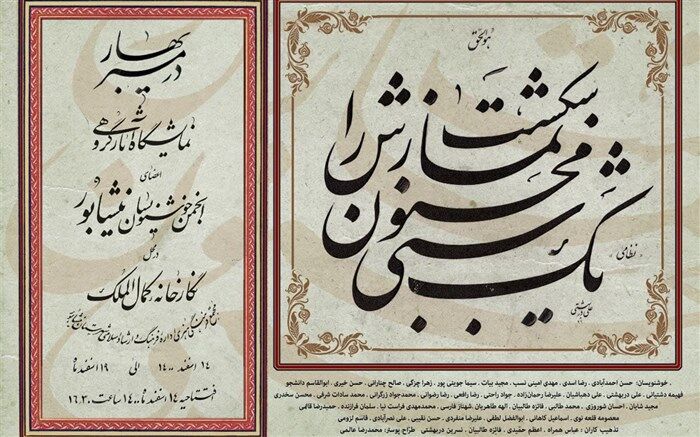 هوالحق
یک شبی مجنون نمازش را شکست
نظامی
بهار
در مسیر
نمایشگاه آثار گروهی
اعضای
انجمن خوشنویسان نیشابور
در محل
نگارخانه کمال الملک
۱۴ اسفند ۱۴۰۰ الی ۱۹ اسفند ماه
افتتاحیه ۱۴ اسفند ماه ۱۴۰۰ ساعت ۱۶.۳۰
خوشنویسان: حسن احمدآبادی . رضا اسدی . مهدی امینی نسب . مجید بیات . سیما جوینی پور . زهرا چزکی . صالح چنارانی . حسن خیری . ابوالقاسم دانشجو
فهیمه دشتبانی . علی دربهشتی . علی دهباشیان . علیرضا رحمان‌زاده . جواد راحتی . رضا رافعی . رضا رضوانی . محمدجواد زرگرانی . محمد سادات شرفی . محسن سخدری
مجید شایان . احسان شوروزی . محمد طالبی . فائزه طالبیان . الهه طاهریان . شهناز فارسی . محمدمهدی فراست نیا . سلمان فرازنده . حمیدرضا قائمی
معصومه قلعه نوی . اسماعیل کاهانی . ابوالفضل لطفی . علیرضا منفردی . حسن نقیبی . علی نصرآبادی . قاسم لزومی
تذهیب کاران : عباس همراه . اعظم حفیدی . فائزه طالبیان . نسرین دربهشتی . طراح پوستر: محمدرضا عالمی